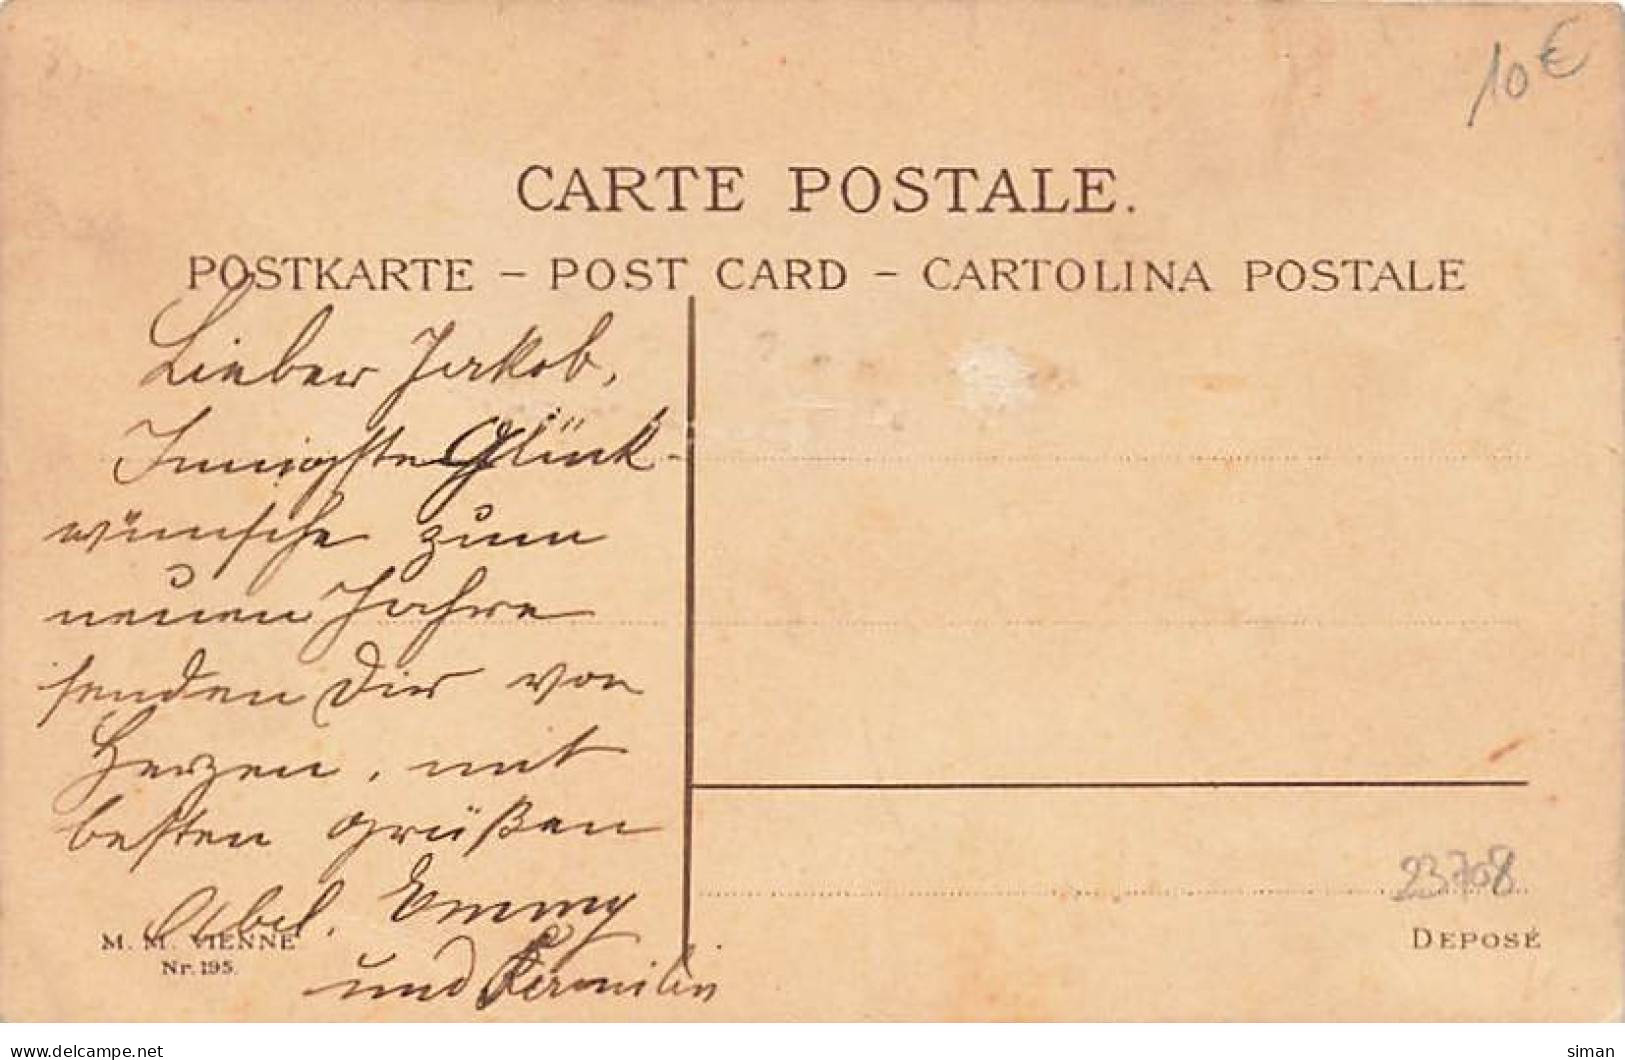 10 €
CARTE POSTALE.
POSTKARTE – POST CARD – CARTOLINA POSTALE
Lieber Jakob,
Innigste Glück-
wünsche zum
neuen Jahre
senden Dir von
Herzen, mit
besten Grüßen
Abel. Emmy
und
M. M. VIENNE
Nr. 195.
23708
DEPOSÉ
delcampe.net
siman